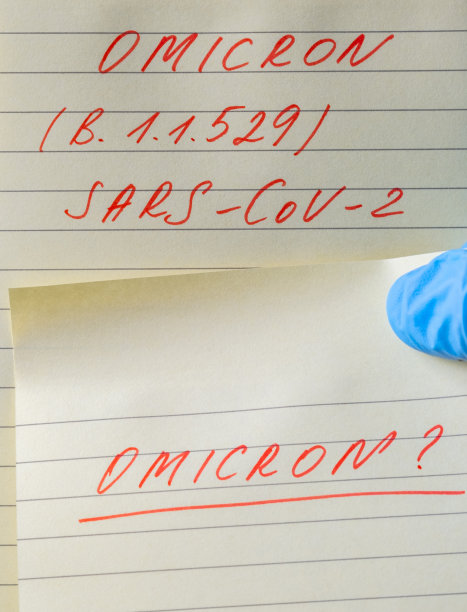 OMICRON
(B. 1.1.529)
SARS-CoV-2
OMICRON?